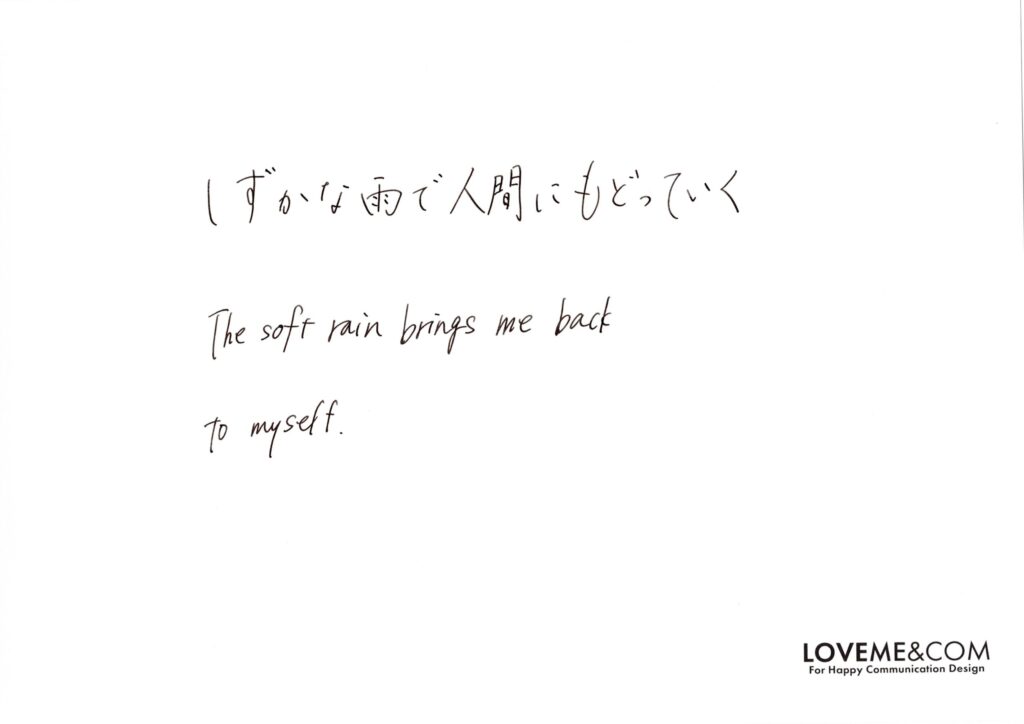 しずかな雨で人間にもどっていく
The soft rain brings me back
to myself.
LOVEME&COM
For Happy Communication Design